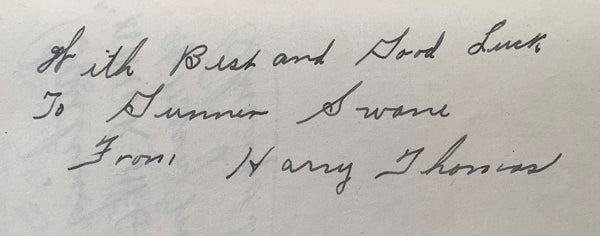 With Best and Good Luck
To Gunner Swane
From Harry Thomas